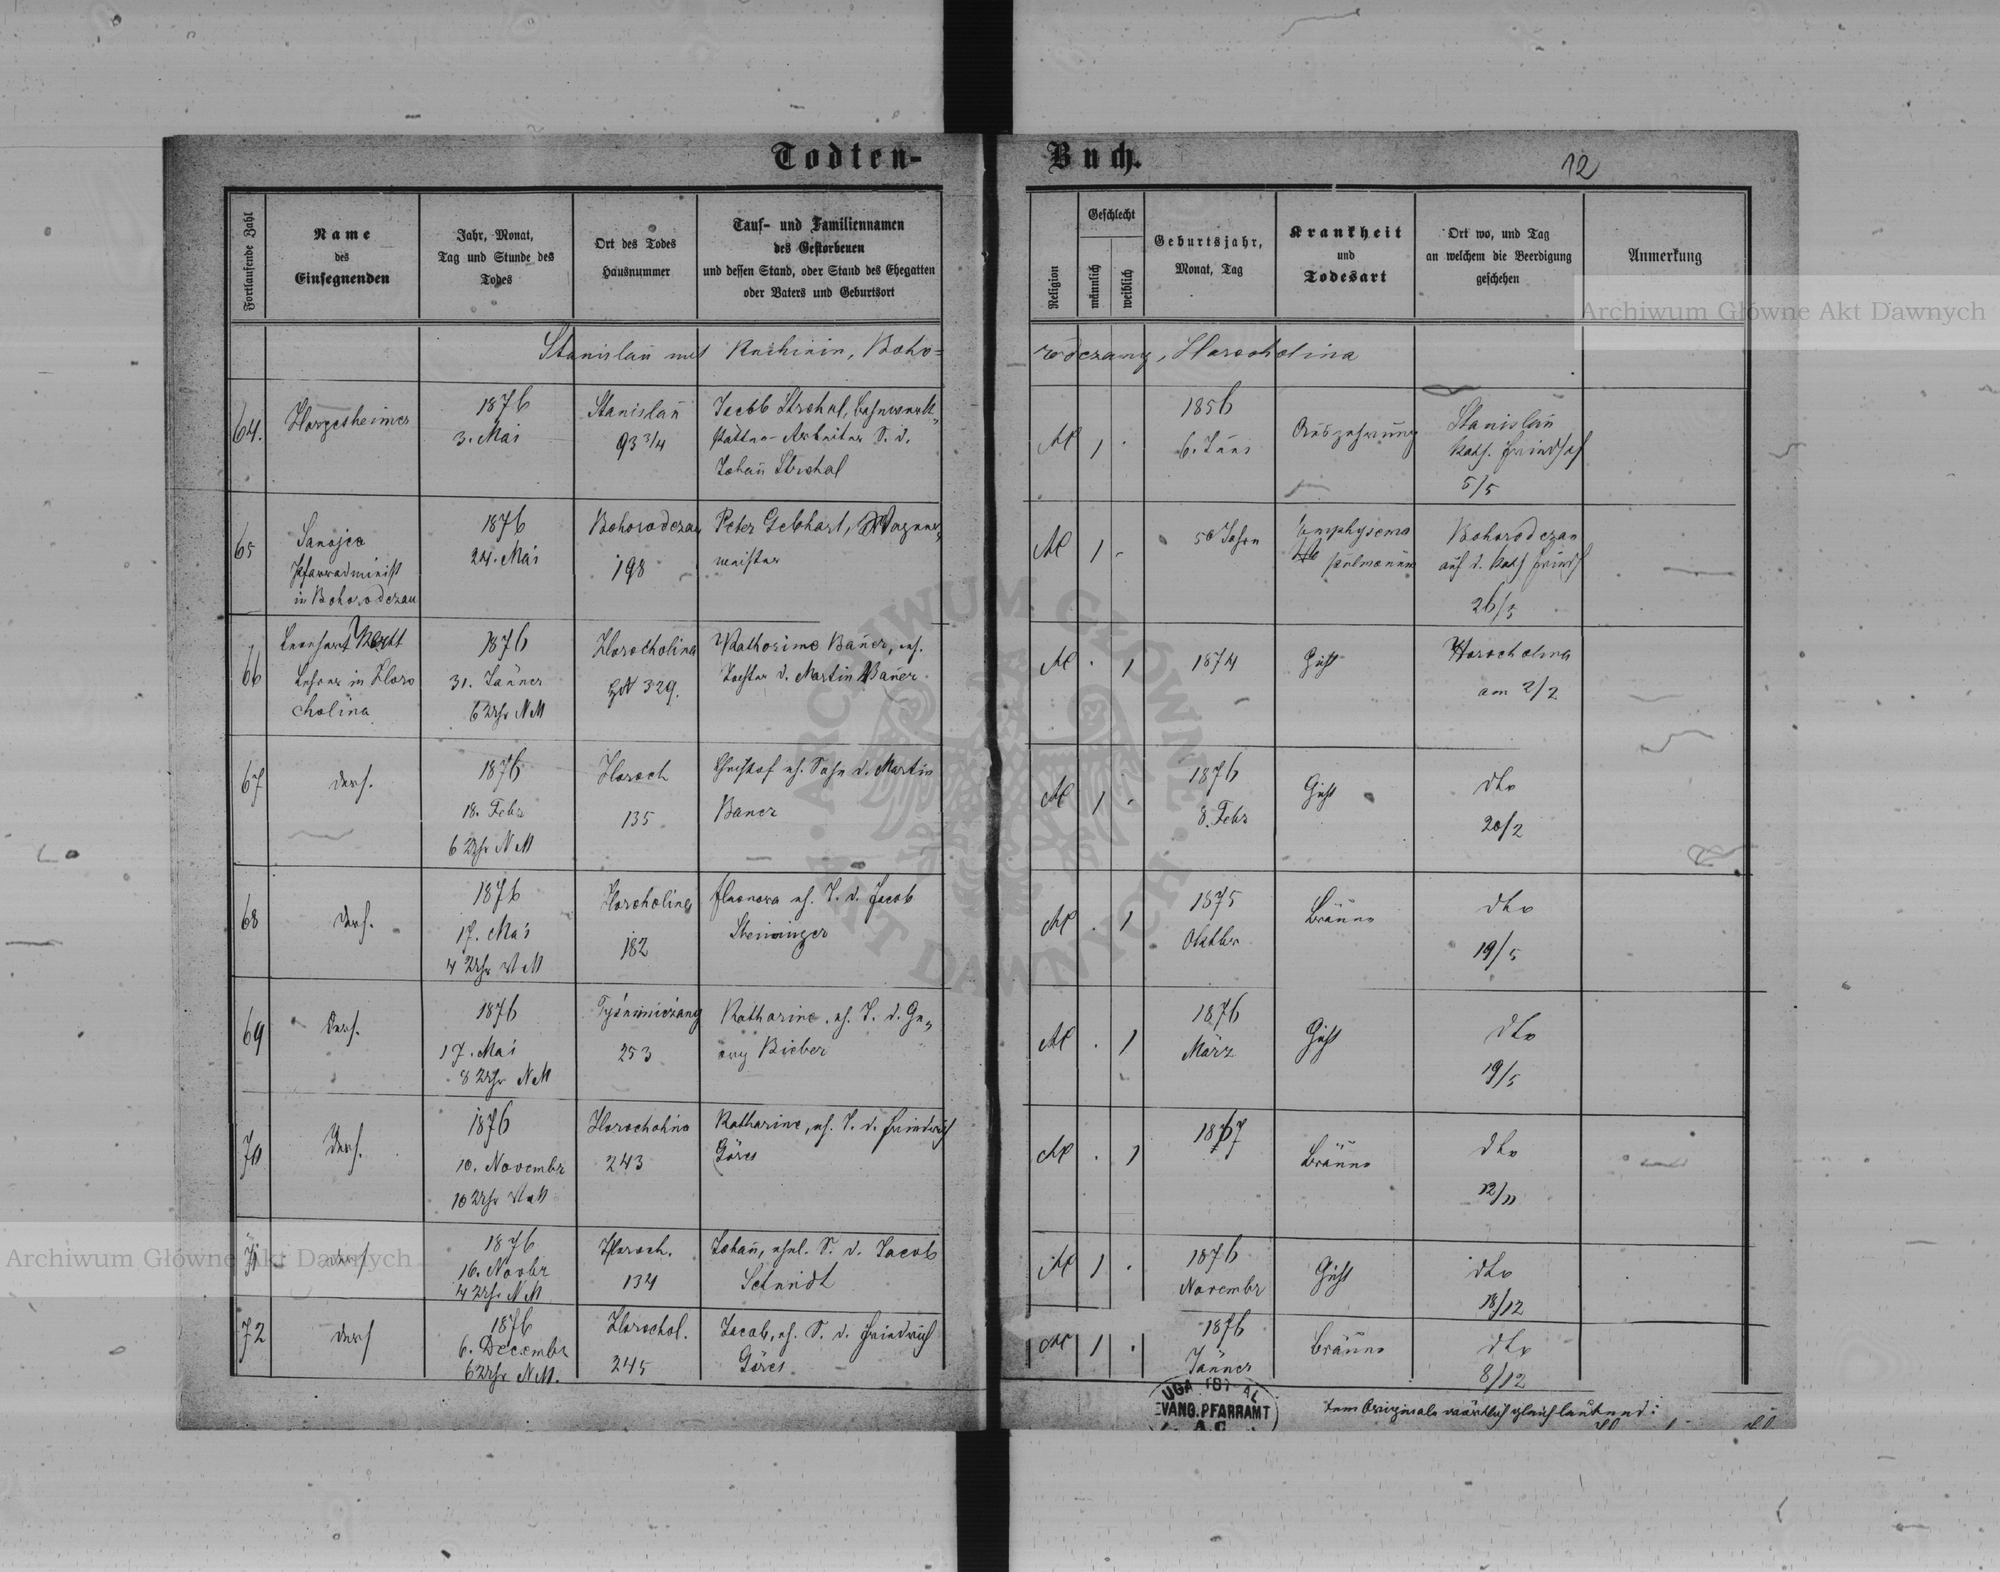 Todten-
Buch.
12
Fortlaufende Zahl
Name
des
Einsegnenden
Jahr, Monat,
Tag und Stunde des
Todes
Ort des Todes
Hausnummer
Tauf- und Familiennamen
des Gestorbenen
und dessen Stand, oder Stand des Ehegatten
oder Vaters und Geburtsort
Religion
Geschlecht
männlich
weiblich
Geburtsjahr,
Monat, Tag
Krankheit
und
Todesart
Ort wo, und Tag
an welchem die Beerdigung
geschehen
Anmerkung
Archiwum Główne Akt Dawnych
Stanislau mit Knihinin, Boho-
rodczany, Horocholina
64.
Hargesheimer
1876
3. Mai
Stanislau
93 3/4
Jacob Strohal,
Arbeiter S. d.
Johan Strohal
1
1856
6. Juni
Auszehrung
Stanislau
kath. Friedhof
5/5
65
Sanojca
Pfarradminist
in Bohorodczan
1876
24. Mai
Bohorodczan
198
Peter Gebhart, Wagner
meister
1
50 Jahre
Emphysema
pulmonum
Bohorodczan
auf d. kath Friedh
26/5
66
Leonhart
Lehrer in Horo
cholina
1876
31. Jänner
6 Uhr NM
Horocholina
329.
Katharine Bauer, eh.
Tochter d. Martin Bauer
1
1874
Gicht
Horocholina
am 2/2
67
ders.
1876
18. Febr
6 Uhr NM
Horoch
135
Christof eh. Sohn d. Martin
Bauer
1
1876
8. Febr
Gicht
dto
20/2
68
ders.
1876
17. Mai
4 Uhr VM
Horocholina
182
Eleonora eh. T. d. Jacob
Steininger
1
1875
Oktober
Bräune
dto
19/5
69
ders.
1876
17. Mai
8 Uhr NM
Tyśminiczany
253
Katharine, eh. T. d. Ge-
org Bieber
1
1876
März
Gicht
dto
19/5
70
ders.
1876
10. Novembr
10 Uhr VM
Horocholina
243
Katharine, eh. T. d. Friedrich
Göres
1
Bräune
dto
12/11
71
ders
1876
16. Novbr
4 Uhr NM
Horoch.
134
Johan, ehel. S. d. Jacob
Schmidt
1
1876
Novembr
Gicht
dto
18/12
72
ders
1876
6. Decembr
6 Uhr NM.
Horochol.
245
Jacob, eh. S. d. Friedrich
Göres
1
1876
Jänner
Bräune
dto
8/12
Archiwum Główne Akt Dawnych
ARCHIWUM GŁÓWNE AKT DAWNYCH
EVANG. PFARRAMT
A.C
dem Originale wörtlich gleichlautend: